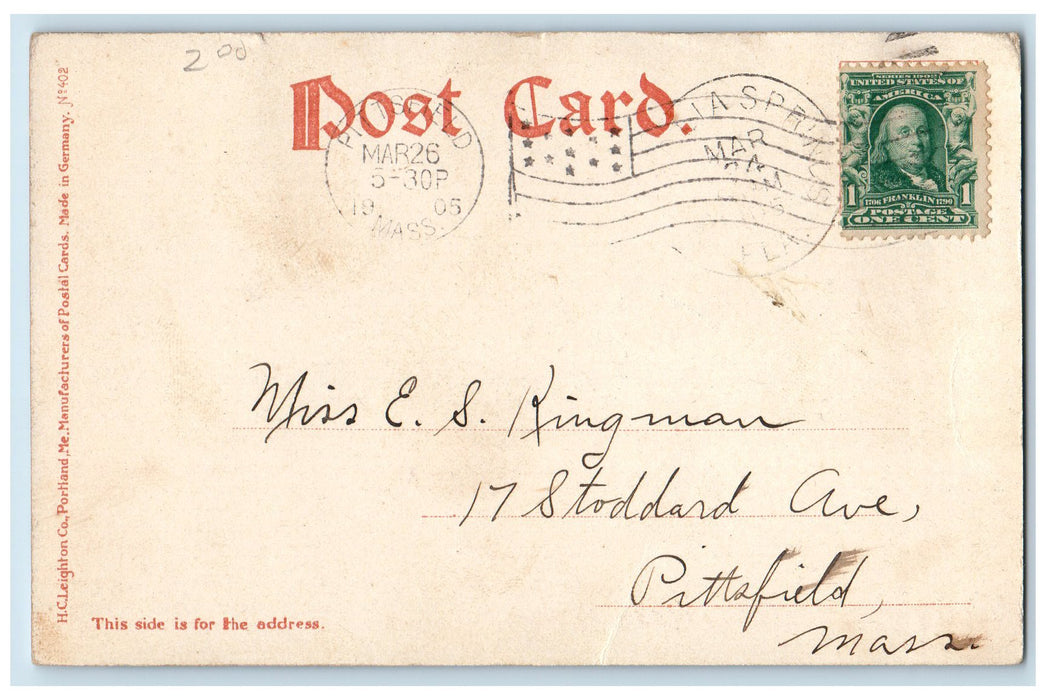 2 00
Post Card.
PITTSFIELD
MAR 26
5-30P
19 05
MASS.
SPRINGS
MAR
FLA.
SERIES 1902
UNITED STATES OF
AMERICA
1 1
1706 FRANKLIN 1790
POSTAGE
ONE CENT
H.C. Leighton Co., Portland, Me. Manufacturers of Postal Cards. Made in Germany. Nº 402
Miss E. S. Kingman
17 Stoddard Ave,
Pittsfield,
Mass.
This side is for the address.